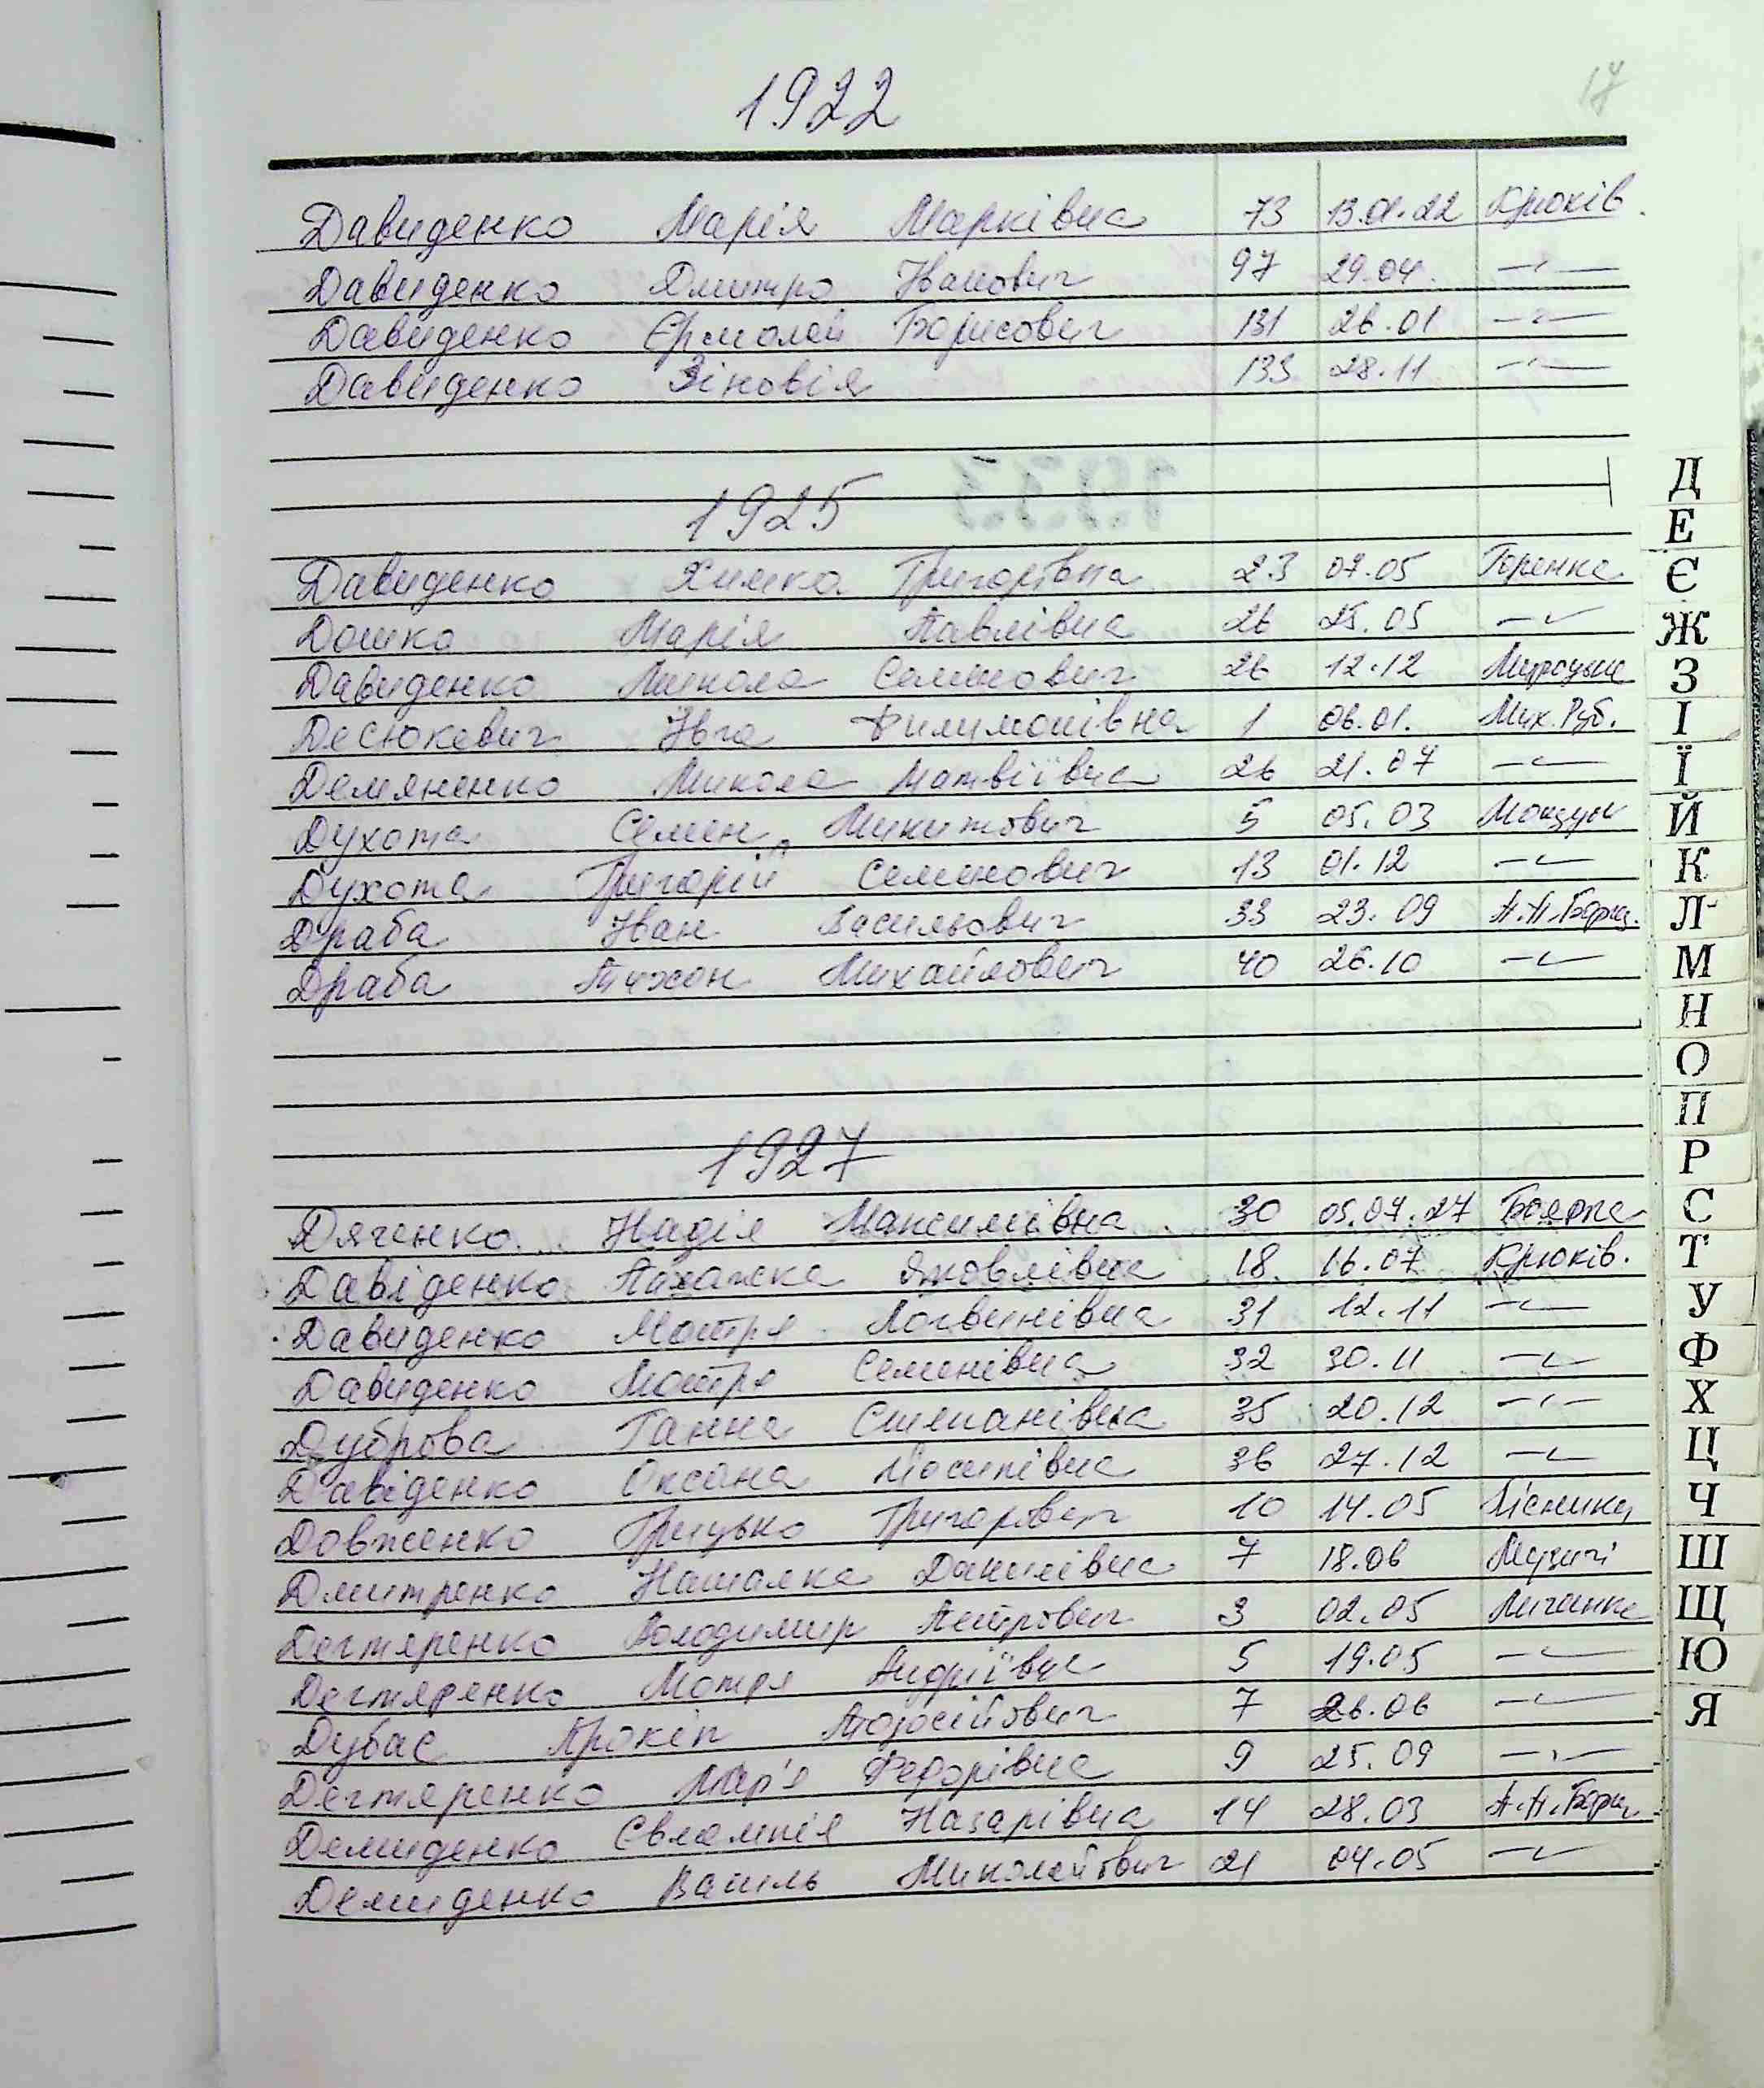 17
1922
Давиденко Марія Марківна 73 13.01.22 Крюків.
Давиденко Дмитро Іванович 97 29.04. —"—
Давиденко Єрмолай Борисович 131 26.01 —"—
Давиденко Зіновія 133 28.11 —"—
1925
Давиденко Химка Григорівна 23 07.05 Горенка
Дошка Марія Павлівна 26 25.05 —"—
Давиденко Микола Семенович 26 12.12 Мироцьке
Десюкевич Івга Филимонівна 1 06.01. Мих. Руб.
Демяненко Микола Матвіївна 26 21.07 —"—
Духота Семен Микитович 5 05.03 Мощун
Духота Григорій Семенович 13 01.12 —"—
Драба Іван Васильович 33 23.09 П.П.Борщ.
Драба Тихон Михайлович 40 26.10 —"—
1927
Дяченко Надія Максимівна 30 05.07.27 Боярка
Давіденко Палажка Яковлівна 18. 16.07 Крюків.
Давиденко Мотря Логвинівна 31 12.11 —"—
Давиденко Мотря Семенівна 32 30.11 —"—
Дуброва Ганна Степанівна 35 20.12 —"—
Давіденко Оксана Йосипівна 36 27.12 —"—
Довженко Грицько Григорович 10 14.05 Лісники
Дмитренко Наталка Данилівна 7 18.06 Музичі
Дегтяренко Володимир Петрович 3 02.05 Личанка
Дегтяренко Мотря Андріївна 5 19.05 —"—
Дубас Прокіп 7 26.06 —"—
Дегтяренко Мар'я Федорівна 9 25.09 —"—
Демиденко Євлампія Назарівна 14 28.03 П.П.Борщ.
Демиденко Василь Миколайович 21 04.05 —"—
Д
Е
Є
Ж
З
І
Ї
Й
К
Л
М
Н
О
П
Р
С
Т
У
Ф
Х
Ц
Ч
Ш
Щ
Ю
Я